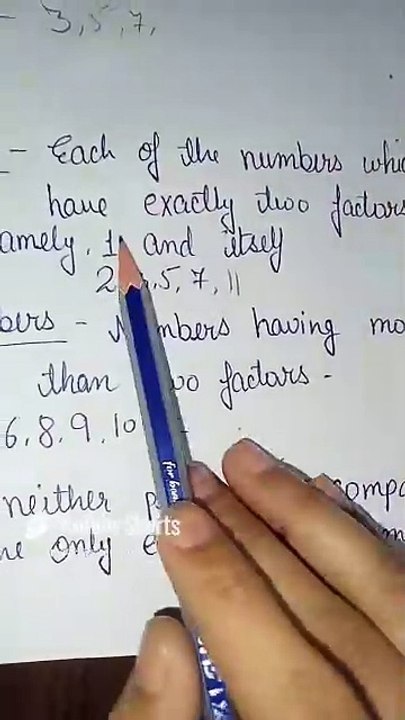 - 3, 5, 7,
- Each of the numbers whic
have exactly two factors
amely, 1 and itself
2, 5, 7, 11
bers - Numbers having mo
than two factors -
6, 8, 9, 10
neither compo
ne only
For